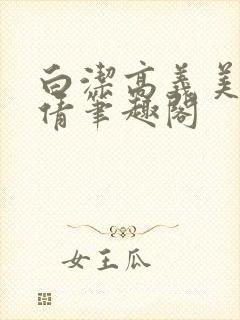 白潔高義美
倩筆趣閣
女王瓜